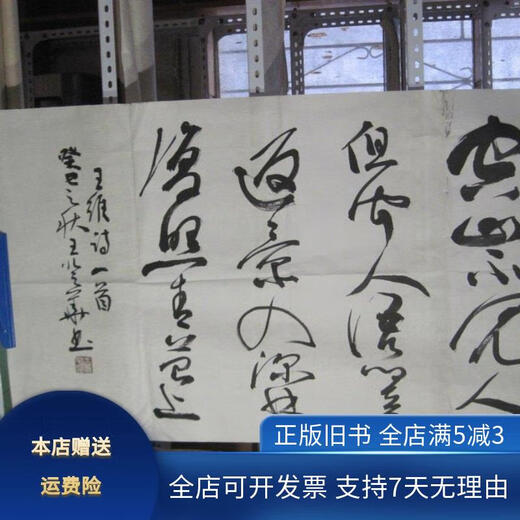 空山不见人
但闻人语响
返景入深林
复照青苔上
王维诗一首
癸巳之秋王华书
本店赠送
运费险
正版旧书 全店满5减3
全店可开发票 支持7天无理由